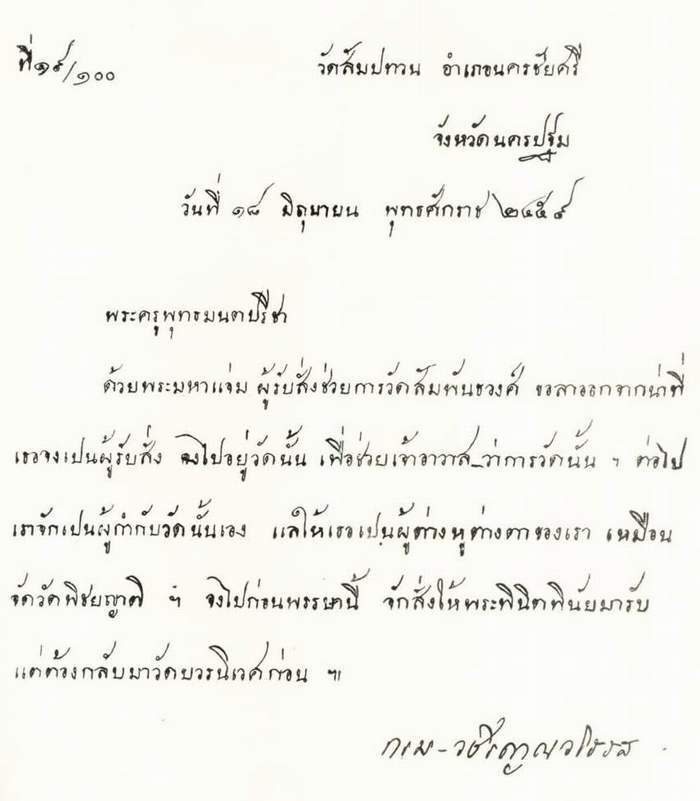 ที่ ๑๙/๑๐๐ วัดสัมปทวน อำเภอนครชัยศรี
จังหวัดนครปฐม
วันที่ ๑๘ มิถุนายน พุทธศักราช ๒๔๕๙
พระครูพุทธมนตปรีชา
ด้วยพระมหาแจ่ม ผู้รับสั่งช่วยการวัดสัมพันธวงศ์ ขอลาออกจากน่าที่
เธอจงเป็นผู้รับสั่ง ฉนไปอยู่วัดนั้น เพื่อช่วยเจ้าอาวาส ว่าการวัดนั้น ฯ ต่อไป
เราจักเป็นผู้กำกับวัดนั้นเอง แลให้เธอเป็นผู้ต่างหูต่างตาของเรา เหมือน
จัดวัดพิชยญาติ ฯ จงไปก่อนพรรษานี้ จักสั่งให้พระพินิตพินัยมารับ
แต่ต้องกลับมาวัดบวรนิเวศก่อน ฯ
กรม-วชิรญาณวโรรส